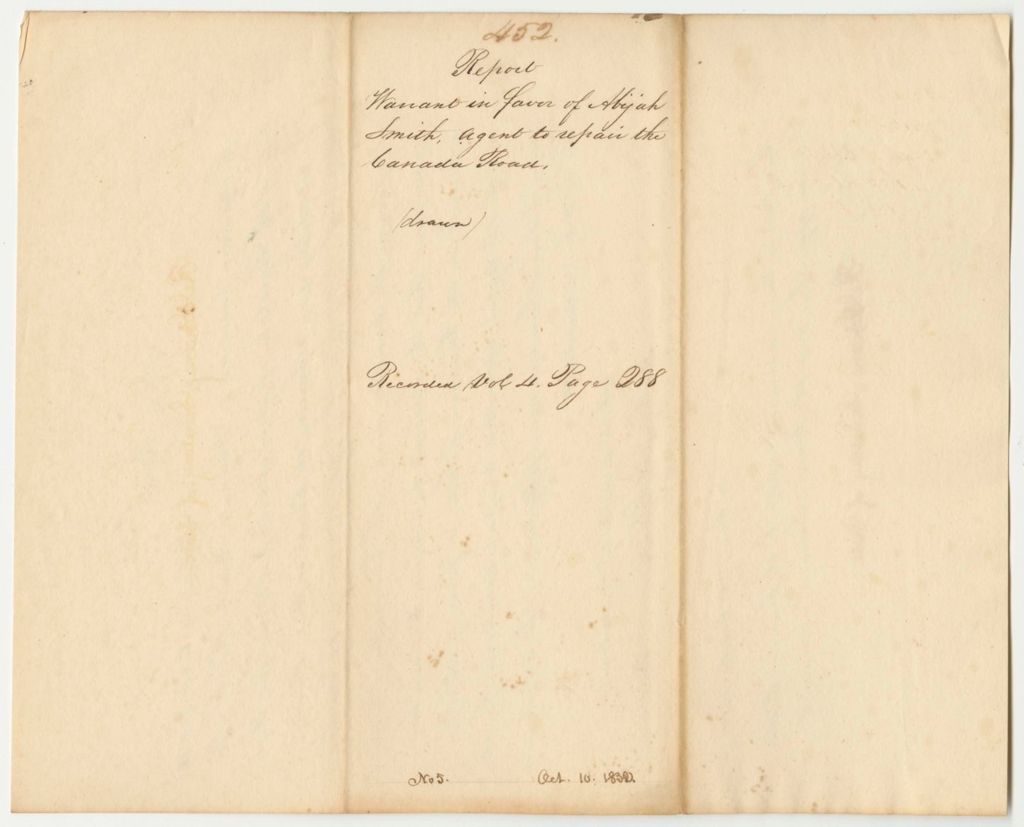 452.
Report
Warrant in favor of Abijah
Smith, agent to repair the
Canada Road.
(drawn)
Recorded Vol 4. Page 288
No 5. Oct. 10. 1832.